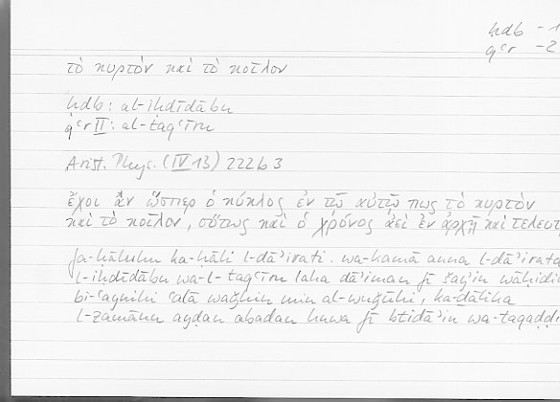 ḥdb - 1
qʿr - 2
τὸ κυρτὸν καὶ τὸ κοῖλον
ḥdb: al-iḥdīdābu
qʿr II: al-taqʿīru
Arist. Phys. (IV 13) 222b3
ἔχοι ἂν ὥσπερ ὁ κύκλος ἐν τῷ αὐτῷ πως τὸ κυρτὸν
καὶ τὸ κοῖλον, οὕτως καὶ ὁ χρόνος ἀεὶ ἐν ἀρχῇ καὶ
fa-ḥāluhu ka-ḥāli l-dāʾirati. wa-kamā anna l-dāʾirata
l-iḥdīdābu wa-l-taqʿīru laha dāʾiman fī šayʾin wāḥidin
bi-ʿaynihi ʿalā waǧhin min al-wuǧūhi, ka-ḏālika
l-zamānu ayḍan abadan huwa fī btidāʾin